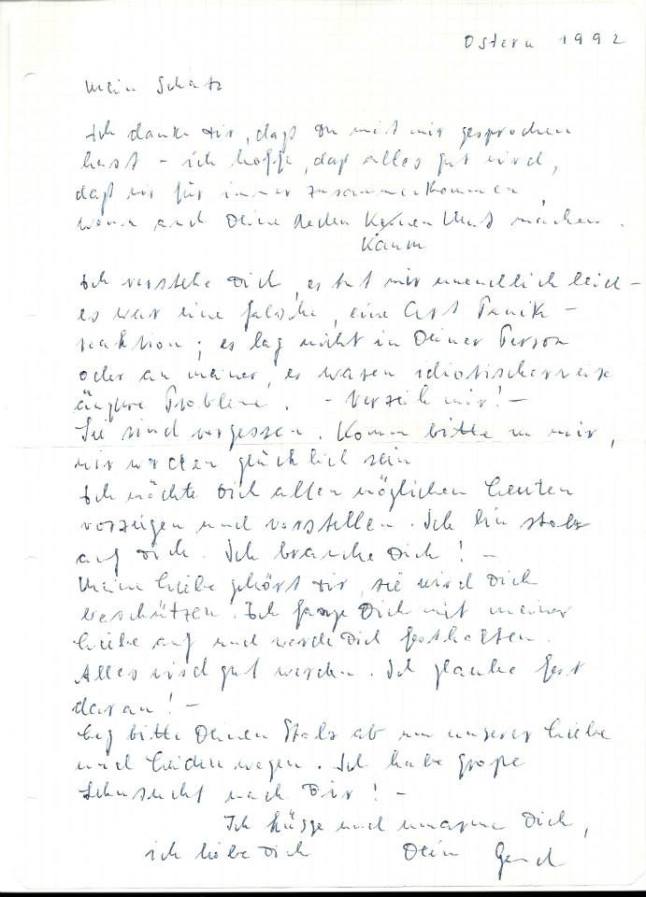 Ostern 1992
Mein Schatz
Ich danke Dir, daß Du mit mir gesprochen
hast – ich hoffe, daß alles gut wird,
daß wir für immer zusammenkommen,
wenn auch Deine Reden keinen Mut machen.
kaum
Ich verstehe Dich, es tut mir unendlich leid –
es war eine falsche, eine Art Panik –
reaktion; es lag nicht in Deiner Person
oder an meiner, es waren idiotischerweise
äußere Probleme. – Verzeih mir! –
Sie sind vergessen. Komm bitte zu mir,
wir werden glücklich sein
Ich möchte Dich allen möglichen Leuten
vorzeigen und vorstellen. Ich bin stolz
auf Dich. Ich brauche Dich! –
Meine Liebe gehört Dir, sie wird Dich
beschützen. Ich fange Dich mit meiner
Liebe auf und werde Dich festhalten.
Alles wird gut werden. Ich glaube fest
daran! –
Leg bitte Deinen Stolz ab um unserer Liebe
und Leiden wegen. Ich habe große
Sehnsucht nach Dir! –
Ich küsse und umarme Dich,
ich liebe Dich Dein